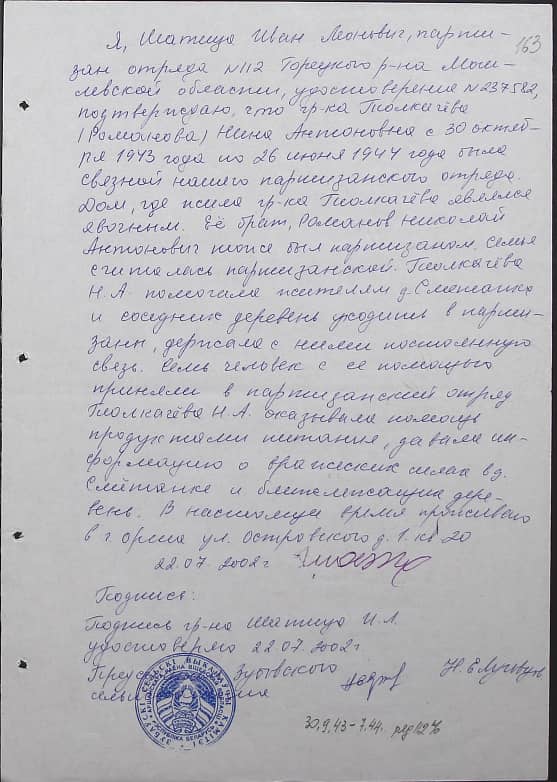 163
Я, Шатица Иван Леонович, парти-
зан отряда №112 Горецкого р-на Моги-
левской области, удостоверение №237582,
подтверждаю, что гр-ка Толкачёва
(Романова) Нина Антоновна с 30 октяб-
ря 1943 года по 26 июня 1944 года была
связной нашего партизанского отряда.
Дом, где жила гр-ка Толкачёва являлся
явочным. Её брат, Романов Николай
Антонович тоже был партизаном. Семья
считалась партизанской. Толкачёва
Н.А. помогала жителям д. Сметанка
и соседних деревень уходить в парти-
заны, держала с ними постоянную
связь. Семь человек с её помощью
приняли в партизанский отряд
Толкачёва Н.А. оказывала помощь
продуктами питания, давала ин-
формацию о вражеских силах в д.
Сметанке и близлежащих дере-
вень. В настоящее время проживаю
в г. Орша ул. Островского д. 1. кв 20
22.07. 2002г
Подпись:
Подпись гр-на Шатица И.Л.
удостоверяю 22.07.2002г
Зубовского
30.9.43-7.44.